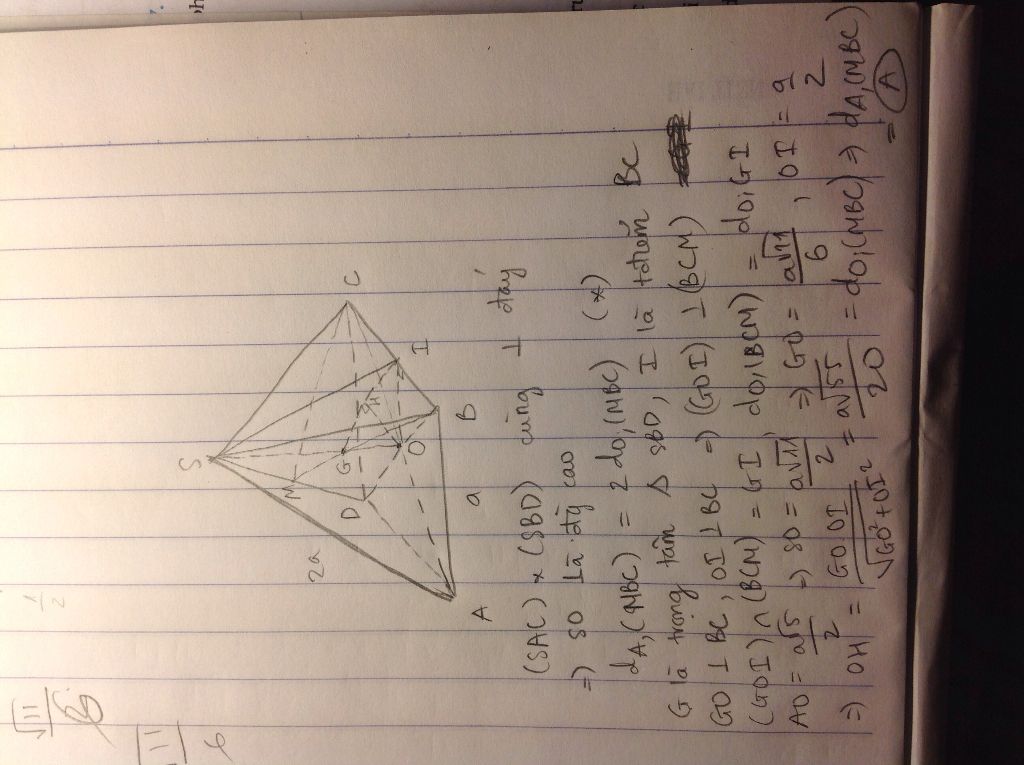 S
2a
M
G
H
D
O
I
C
A
a
B
(SAC) x (SBD) cùng ⊥ đáy
=) SO là đg cao
dA,(MBC) = 2 dO,(MBC) (*)
G là trọng tâm Δ SBD, I là tđiểm BC
GO ⊥ BC, OI ⊥ BC =) (GOI) ⊥ (BCM)
(GOI) ∩ (BCM) = GI dO,(BCM) = dO,GI
AO = a√5/2 =) SO = a√11/2 =) GO = a√11/6, OI = a/2
=) OH = GO.OI/√GO²+OI² = a√55/20 = dO,(MBC) =) dA,(MBC)
= (A)
√11
√11/6
1/2